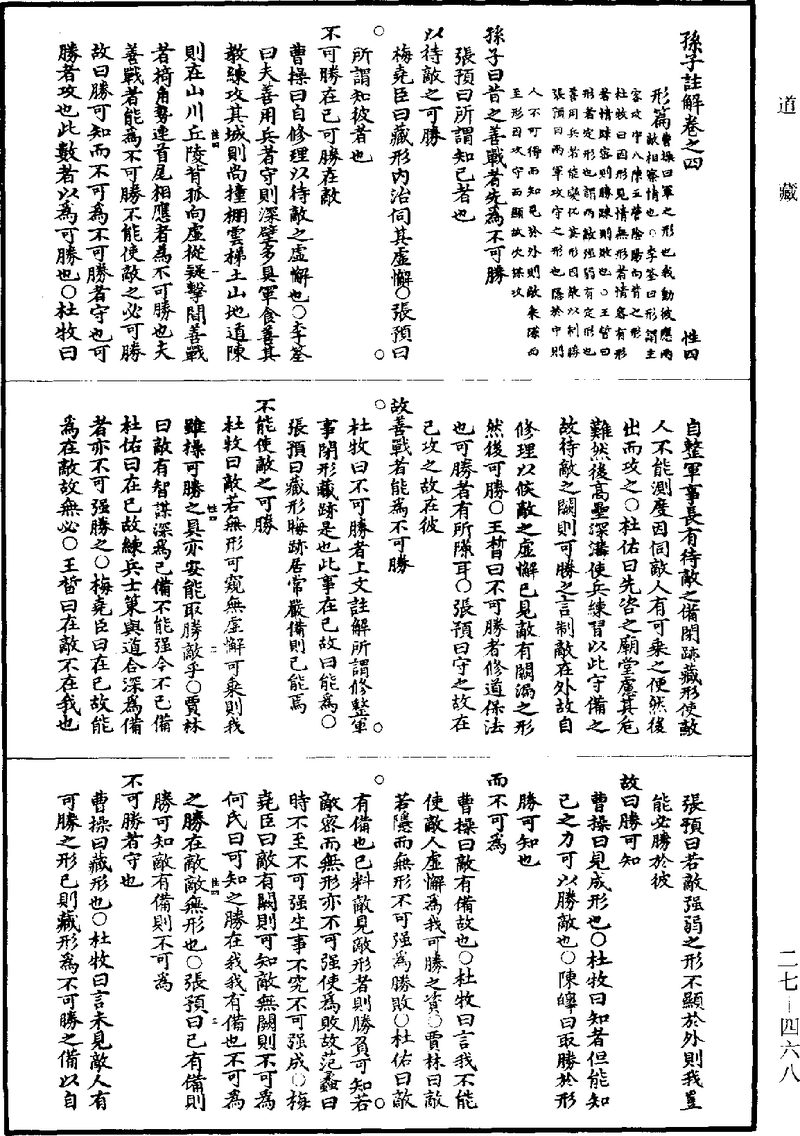 道藏
孫子註解卷之四
性四
形篇
曹操曰軍之形也我動彼應兩
敵相察情也○李筌曰形謂主
客攻守八陳五營陰陽向背之形
杜牧曰因形見情無形者情密有形
者情疎密則勝疎則敗也○王晳曰
形者定形也謂兩敵強弱有定形也
善用兵者能變化其形因敵以制勝
張預曰兩軍攻守之形也隱於中則
人不可得而知見於外則敵乘隙而
至形因攻守而顯故次謀攻
孫子曰昔之善戰者先為不可勝
張預曰所謂知己者也
以待敵之可勝
梅堯臣曰藏形內治伺其虛懈○張預曰
所謂知彼者也
不可勝在己可勝在敵
曹操曰自修理以待敵之虛懈也○李筌
曰夫善用兵者守則深壁多具軍食善其
教練攻其城則尚撞棚雲梯土山地道陳
則在山川丘陵背孤向虛從疑擊間善戰
者掎角勢連首尾相應者為不可勝也夫
善戰者能為不可勝不能使敵之必可勝
故曰勝可知而不可為不可勝者守也可
勝者攻也此數者以為可勝也○杜牧曰
自整軍事長有待敵之備閉跡藏形使敵
人不能測度因伺敵人有可乘之便然後
出而攻之○杜佑曰先咨之廟堂慮其危
難然後高壘深溝使兵練習以此守備之
故待敵之闕則可勝之言制敵在外故自
修理以候敵之虛懈已見敵有闕漏之形
然後可勝○王晳曰不可勝者修道保法
也可勝者有所隙耳○張預曰守之故在
己攻之故在彼
故善戰者能為不可勝
杜牧曰不可勝者上文註解所謂修整軍
事閉形藏跡是也此事在己故曰能為○
張預曰藏形晦跡居常嚴備則己能焉
不能使敵之可勝
杜牧曰敵若無形可窺無虛懈可乘則我
雖操可勝之具亦安能取勝敵乎○賈林
曰敵有智謀深為己備不能强令不己備
杜佑曰在己故練兵士策與道合深為備
者亦不可强勝之○梅堯臣曰在己故能
為在敵故無必○王晳曰在敵不在我也
張預曰若敵强弱之形不顯於外則我豈
能必勝於彼
故曰勝可知
曹操曰見成形也○杜牧曰知者但能知
己之力可以勝敵也○陳皥曰取勝於形
勝可知也
而不可為
曹操曰敵有備故也○杜牧曰言我不能
使敵人虛懈為我可勝之資○賈林曰敵
若隱而無形不可强為勝敗○杜佑曰敵
有備也已料敵見敵形者則勝負可知若
敵密而無形亦不可强使為敗故范蠡曰
時不至不可强生事不究不可强成○梅
堯臣曰敵有闕則可知敵無闕則不可為
何氏曰可知之勝在我我有備也不可為
之勝在敵敵無形也○張預曰己有備則
勝可知敵有備則不可為
不可勝者守也
曹操曰藏形也○杜牧曰言未見敵人有
可勝之形已則藏形為不可勝之備以自
二七—四六八